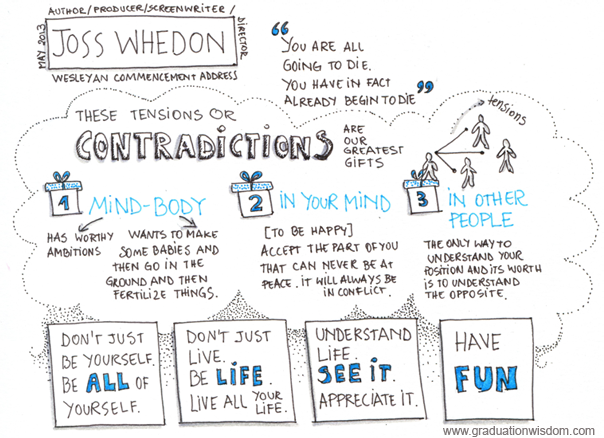 AUTHOR/PRODUCER/SCREENWRITER/
DIRECTOR
MAY 2013
JOSS WHEDON
WESLEYAN COMMENCEMENT ADDRESS
“YOU ARE ALL
GOING TO DIE.
YOU HAVE IN FACT
ALREADY BEGIN TO DIE”
THESE TENSIONS OR
CONTRADICTIONS
ARE
OUR
GREATEST
GIFTS
tensions
1 MIND-BODY
HAS WORTHY
AMBITIONS
WANTS TO MAKE
SOME BABIES AND
THEN GO IN THE
GROUND AND THEN
FERTILIZE THINGS.
2 IN YOUR MIND
[TO BE HAPPY]
ACCEPT THE PART OF YOU
THAT CAN NEVER BE AT
PEACE. IT WILL ALWAYS BE
IN CONFLICT.
3 IN OTHER
PEOPLE
THE ONLY WAY TO
UNDERSTAND YOUR
POSITION AND ITS WORTH
IS TO UNDERSTAND
THE OPPOSITE.
DON'T JUST
BE YOURSELF.
BE ALL OF
YOURSELF.
DON'T JUST
LIVE.
BE LIFE.
LIVE ALL YOUR
LIFE.
UNDERSTAND
LIFE.
SEE IT.
APPRECIATE IT.
HAVE
FUN
www.graduationwisdom.com